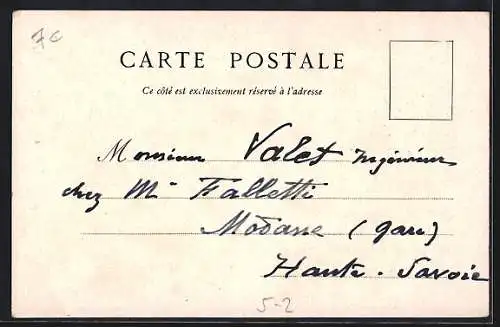 7c
CARTE POSTALE
Ce côté est exclusivement réservé à l'adresse
Monsieur Valet Ingénieur
chez Mr Falletti
Modane (gare)
Haute-Savoie
5-2